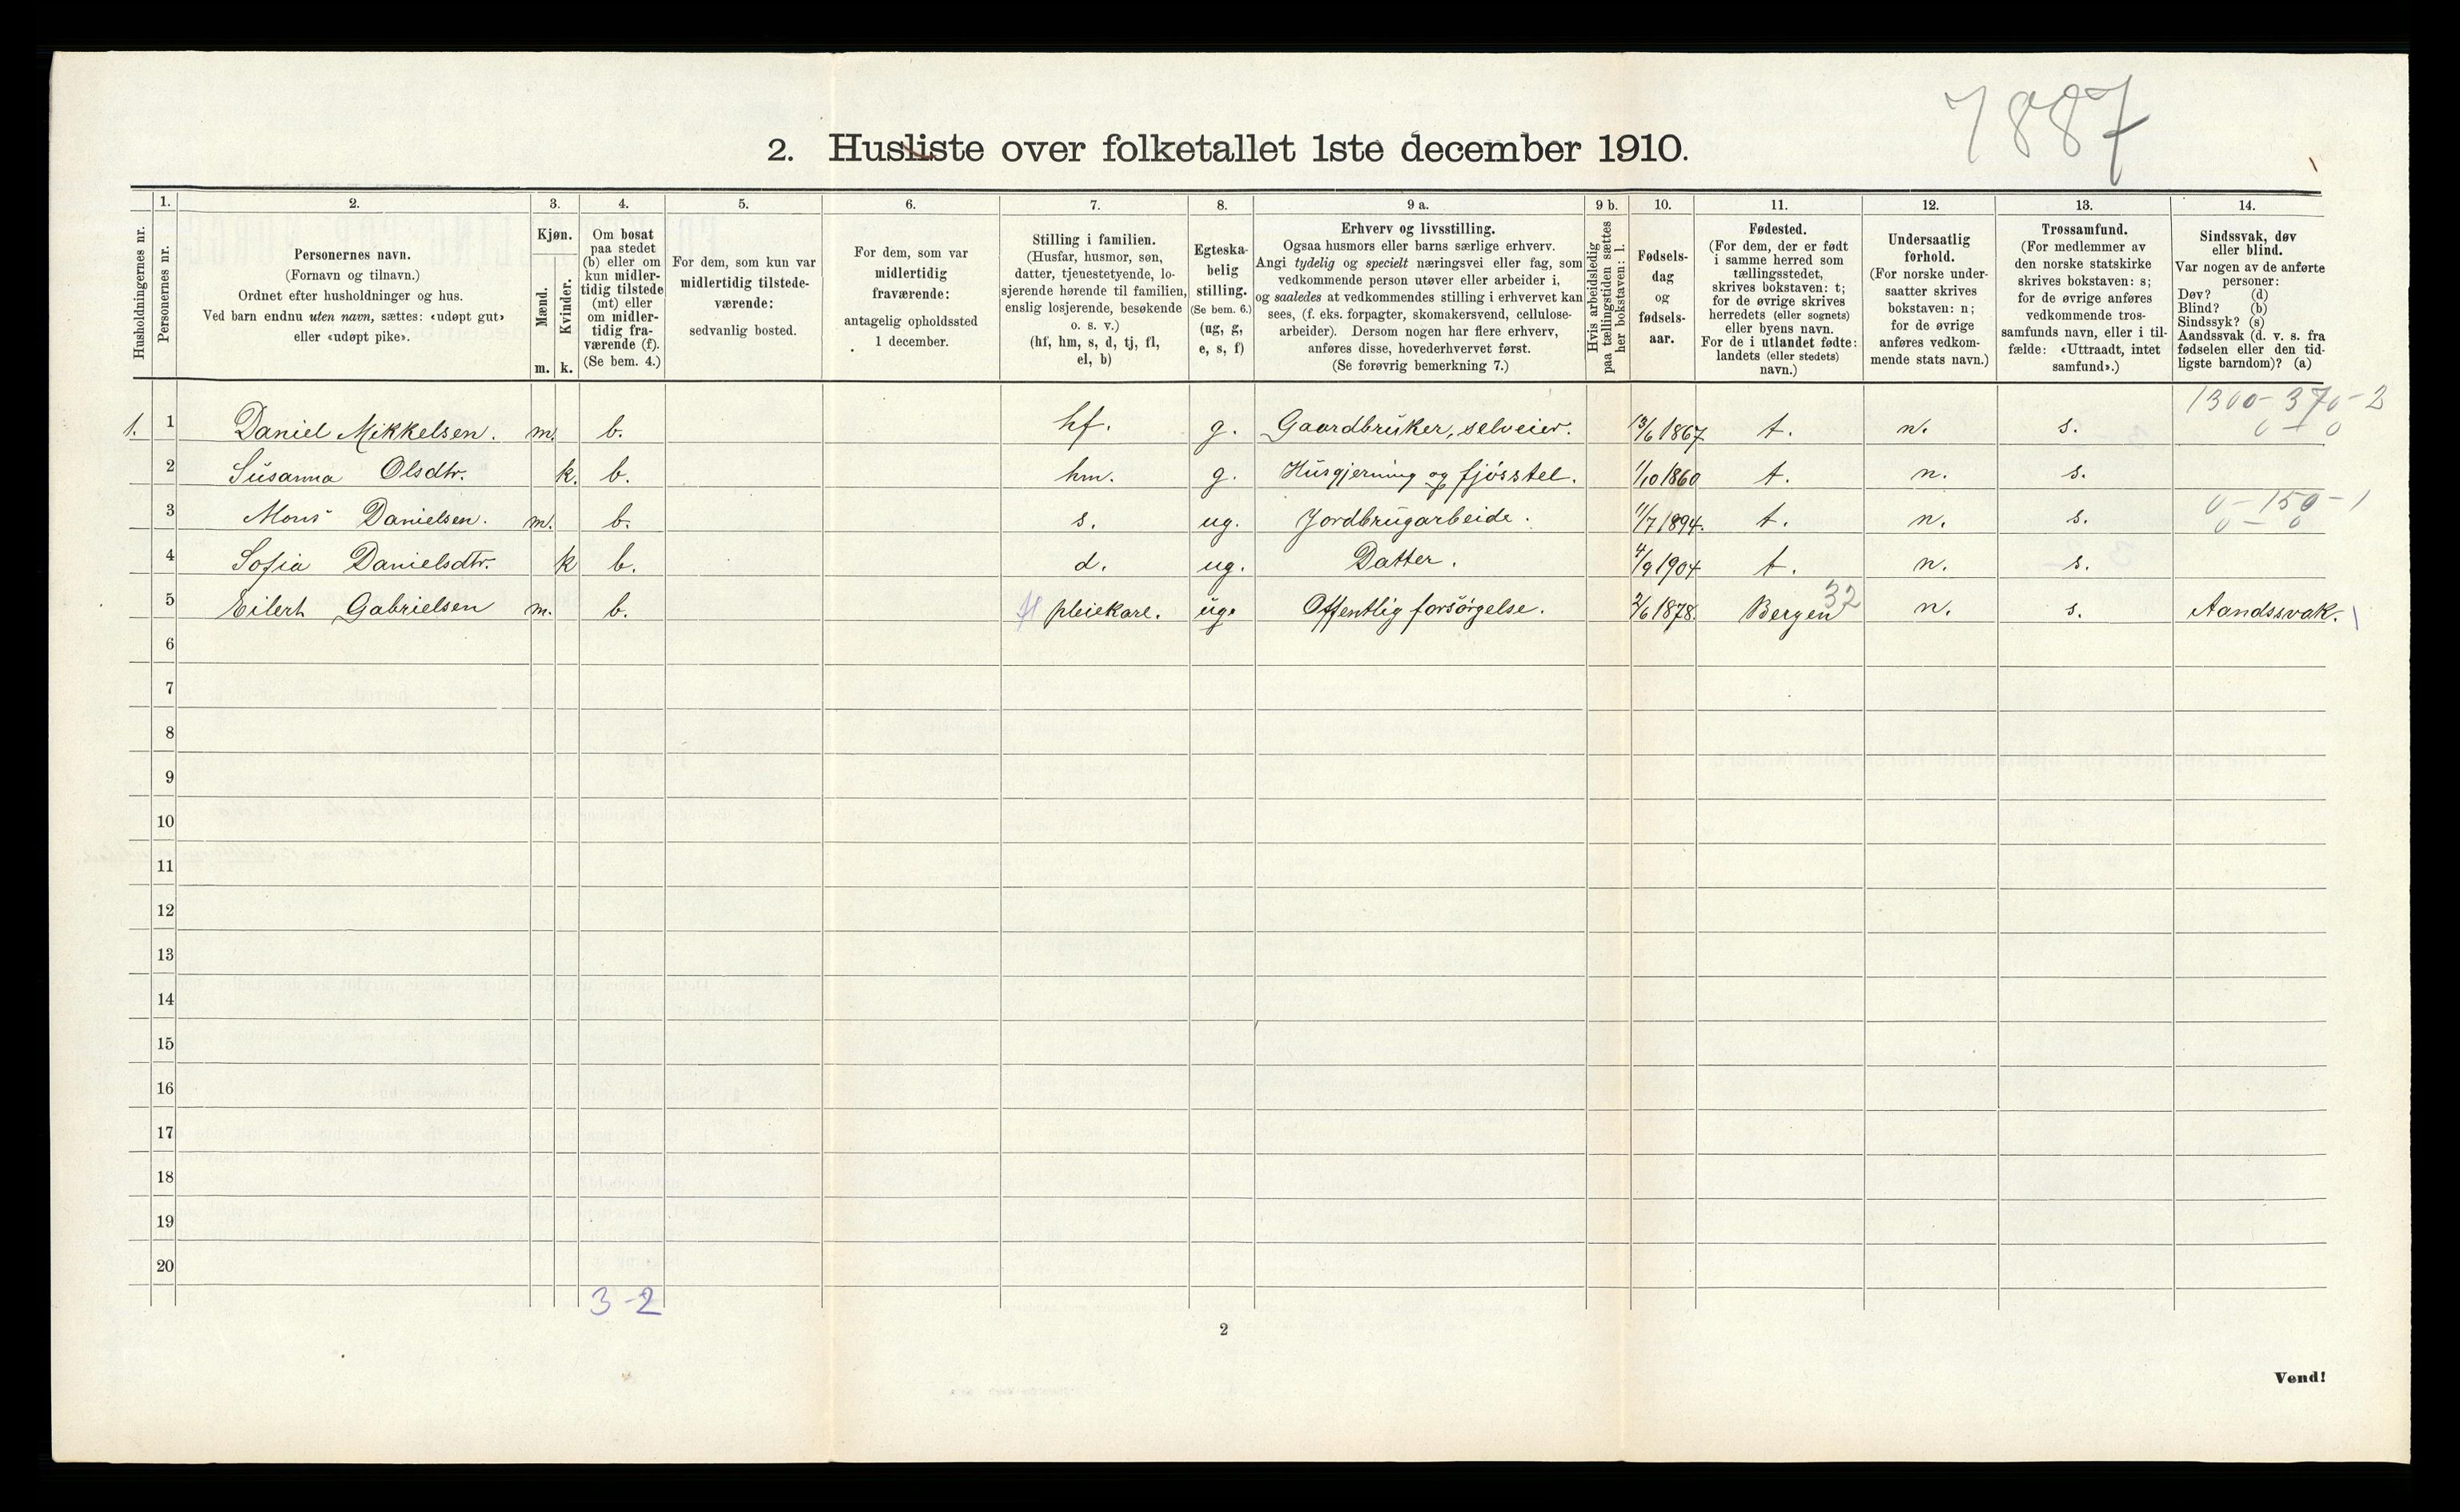 7887
2. Husliste over folketallet 1ste december 1910.
Husholdningernes nr.
1.
Personernes nr.
2.
Personernes navn.
(Fornavn og tilnavn.)
Ordnet efter husholdninger og hus.
Ved barn endnu uten navn, sættes: «udøpt gut»
eller «udøpt pike».
3.
Kjøn.
Mænd.
Kvinder.
m. k.
4.
Om bosat
paa stedet
(b) eller om
kun midler-
tidig tilstede
(mt) eller
om midler-
tidig fra-
værende (f).
(Se bem. 4.)
5.
For dem, som kun var
midlertidig tilstede-
værende:
sedvanlig bosted.
6.
For dem, som var
midlertidig
fraværende:
antagelig opholdssted
1 december.
7.
Stilling i familien.
(Husfar, husmor, søn,
datter, tjenestetyende, lo-
sjerende hørende til familien,
enslig losjerende, besøkende
o. s. v.)
(hf, hm, s, d, tj, fl,
el, b)
8.
Egteska-
belig
stilling.
(Se bem. 6.)
(ug, g,
e, s, f)
9 a.
Erhverv og livsstilling.
Ogsaa husmors eller barns særlige erhverv.
Angi tydelig og specielt næringsvei eller fag, som
vedkommende person utøver eller arbeider i,
og saaledes at vedkommendes stilling i erhvervet kan
sees, (f. eks. forpagter, skomakersvend, cellulose-
arbeider). Dersom nogen har flere erhverv,
anføres disse, hovederhvervet først.
(Se forøvrig bemerkning 7.)
9 b.
Hvis arbeidsledig
paa tællingstiden sættes
her bokstaven: l.
10.
Fødsels-
dag
og
fødsels-
aar.
11.
Fødested.
(For dem, der er født
i samme herred som
tællingsstedet,
skrives bokstaven: t;
for de øvrige skrives
herredets (eller sognets)
eller byens navn.
For de i utlandet fødte:
landets (eller stedets)
navn.)
12.
Undersaatlig
forhold.
(For norske under-
saatter skrives
bokstaven: n;
for de øvrige
anføres vedkom-
mende stats navn.)
13.
Trossamfund.
(For medlemmer av
den norske statskirke
skrives bokstaven: s;
for de øvrige anføres
vedkommende tros-
samfunds navn, eller i til-
fælde: «Uttraadt, intet
samfund».)
14.
Sindssvak, døv
eller blind.
Var nogen av de anførte
personer:
Døv? (d)
Blind? (b)
Sindssyk? (s)
Aandssvak (d. v. s. fra
fødselen eller den tid-
ligste barndom)? (a)
1300-370-2
0-0
1. 1 Daniel Mikkelsen. m. b. hf. g. Gaardbruker, selveier. 13/6 1867 t. n. s.
2 Susanna Olsdtr. k. b. hm. g. Husgjerning og fjösstel. 1/10 1860 t. n. s.
0-150-1
0-0
3 Mons Danielsen. m. b. s. ug. Jordbrugarbeide. 11/7 1894. t. n. s.
4 Sofia Danielsdtr. k b. d. ug. Datter. 4/9 1904 t. n. s.
5 Eilert Gabrielsen m. b. fl pleiekare. ug. Offentlig forsörgelse. 2/6 1878. Bergen 32 n. s. Aandssvak.
6
7
8
9
10
11
12
13
14
15
16
17
18
19
20
3-2
2
Vend!